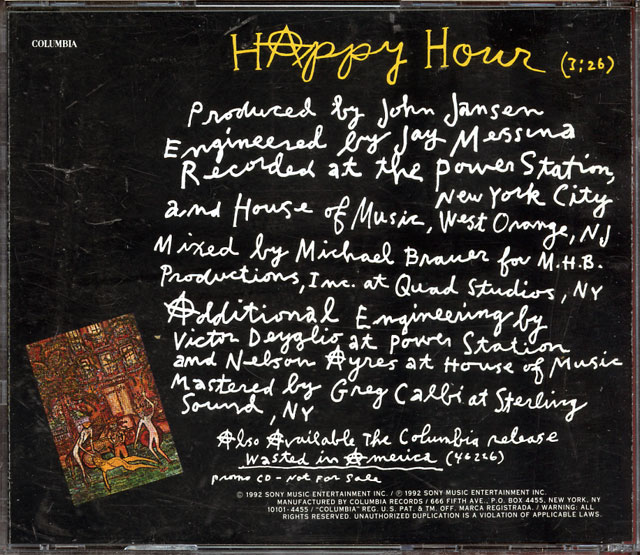 COLUMBIA
HAppy Hour (3:26)
Produced by John Jansen
Engineered by Jay Messina
Recorded at the Power Station,
New York City
and House of Music, West Orange, NJ
Mixed by Michael Brauer for M.H.B.
Productions, Inc. at Quad Studios, NY
Additional Engineering by
Victor Deyglio at Power Station
and Nelson Ayres at House of Music
Mastered by Greg Calbi at Sterling
Sound, NY
Also Available The Columbia release
Wasted in America (46226)
promo CD - Not For Sale
© 1992 SONY MUSIC ENTERTAINMENT INC. / ℗ 1992 SONY MUSIC ENTERTAINMENT INC.
MANUFACTURED BY COLUMBIA RECORDS / 666 FIFTH AVE., P.O. BOX 4455, NEW YORK, NY
10101-4455 / "COLUMBIA" REG. U.S. PAT. & TM. OFF. MARCA REGISTRADA. / WARNING: ALL
RIGHTS RESERVED. UNAUTHORIZED DUPLICATION IS A VIOLATION OF APPLICABLE LAWS.